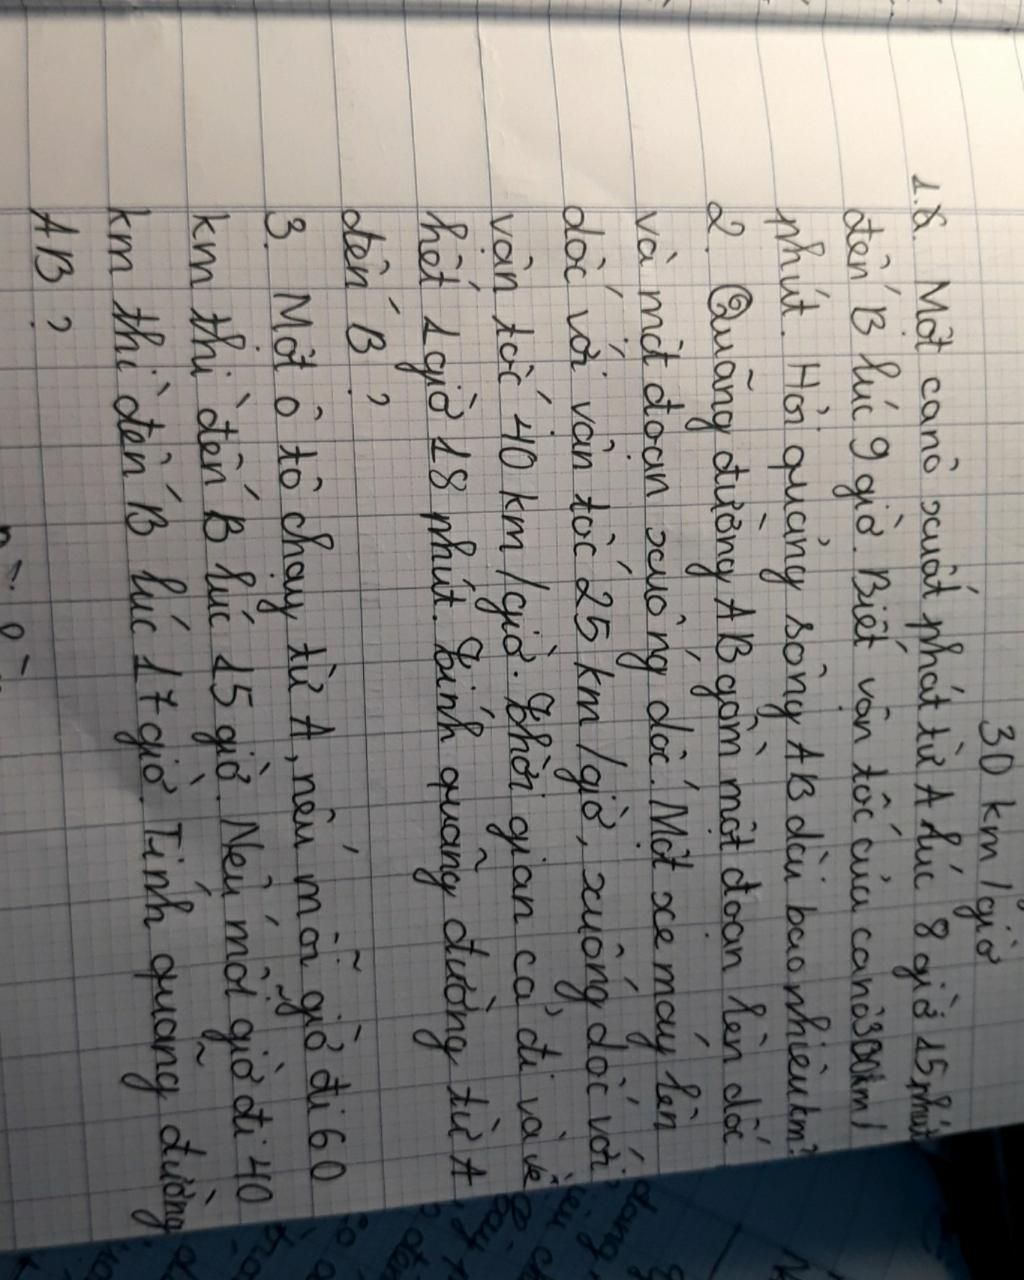 30 km/giờ
1.8. Một canô xuất phát từ A lúc 8 giờ 15 phút
đến B lúc 9 giờ. Biết vận tốc của canô 300km/
phút. Hỏi quảng sông AB dài bao nhiêu km?
2. Quãng đường AB gồm một đoạn lên dốc
và một đoạn xuống dốc. Một xe máy lên
dốc với vận tốc 25 km/giờ, xuống dốc với
vận tốc 40 km/giờ. Thời gian cả đi và về
hết 1 giờ 18 phút. Tính quãng đường từ A
đến B?
3. Một ô tô chạy từ A, nếu mỗi giờ đi 60
km thì đến B lúc 15 giờ. Nếu mỗi giờ đi 40
km thì đến B lúc 17 giờ. Tính quãng đường
AB?